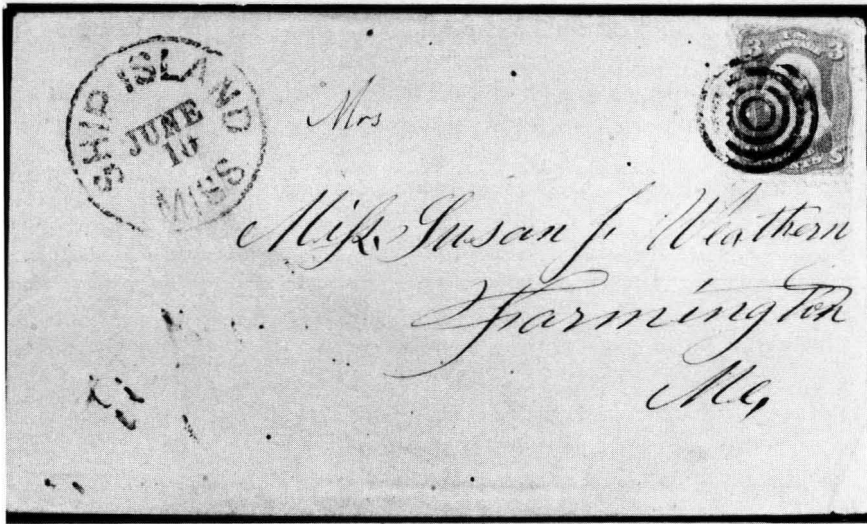 SHIP ISLAND
JUNE
10
MISS
3 3
Mrs
Miss. Susan J. Weathern
Farmington
Me,